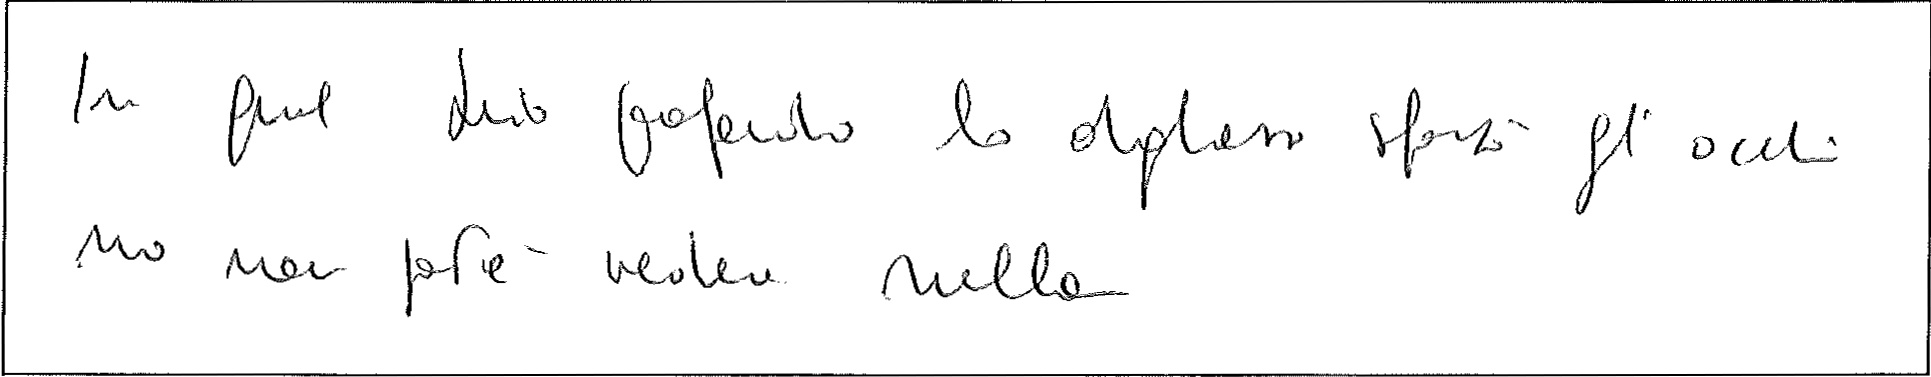 In quel buio profondo lo smilzo sforzò gli occhi
ma non poté vedere nulla